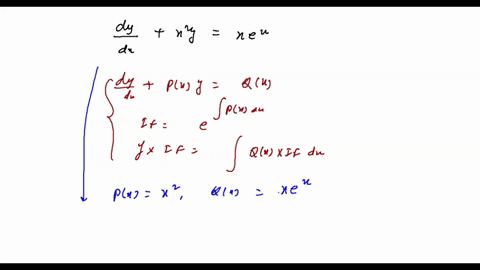 dy/dx + x²y = xeˣ
dy/dx + P(x) y = Q(x)
IF = e^∫P(x) dx
y × IF = ∫ Q(x) × IF dx
P(x) = x², Q(x) = xeˣ